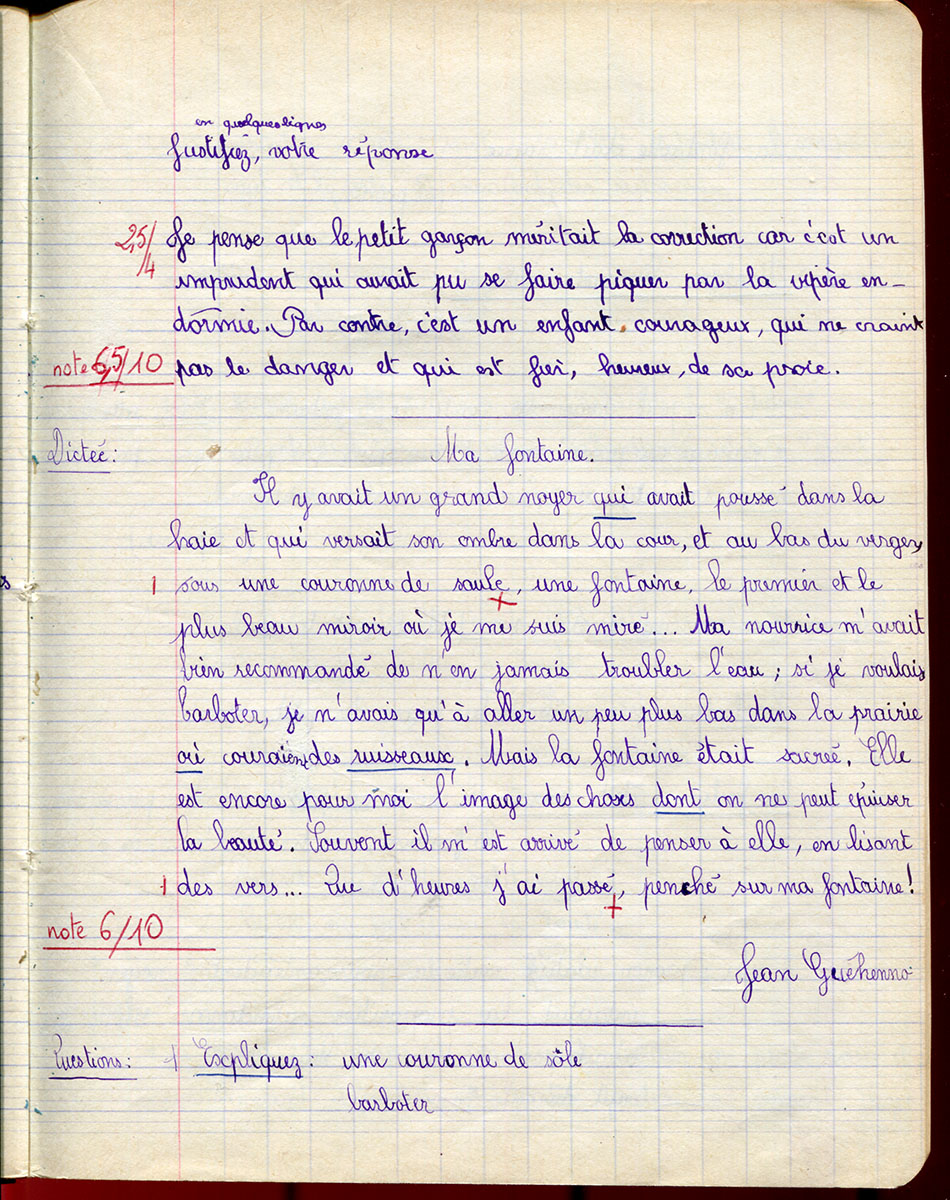 en quelques lignes
Justifiez, votre réponse
2,5/4 Je pense que le petit garçon méritait la correction car c'est un
imprudent qui aurait pu se faire piquer par la vipère en-
dormie. Par contre, c'est un enfant courageux, qui ne craint
note 6,5/10 pas le danger et qui est fier, heureux, de sa proie.
Dictée: Ma fontaine.
Il y avait un grand noyer qui avait poussé dans la
haie et qui versait son ombre dans la cour, et au bas du verger,
1 sous une couronne de saule, une fontaine, le premier et le
plus beau miroir où je me suis miré... Ma nourrice m'avait
bien recommandé de n'en jamais troubler l'eau ; si je voulais
barboter, je n'avais qu'à aller un peu plus bas dans la prairie
où couraient des ruisseaux. Mais la fontaine était sacrée. Elle
est encore pour moi l'image des choses dont on ne peut épuiser
la beauté. Souvent il m'est arrivé de penser à elle, en lisant
1 des vers... Que d'heures j'ai passé, penché sur ma fontaine!
note 6/10
Jean Guéhenno
Questions: 1 Expliquez: une couronne de sôle
barboter